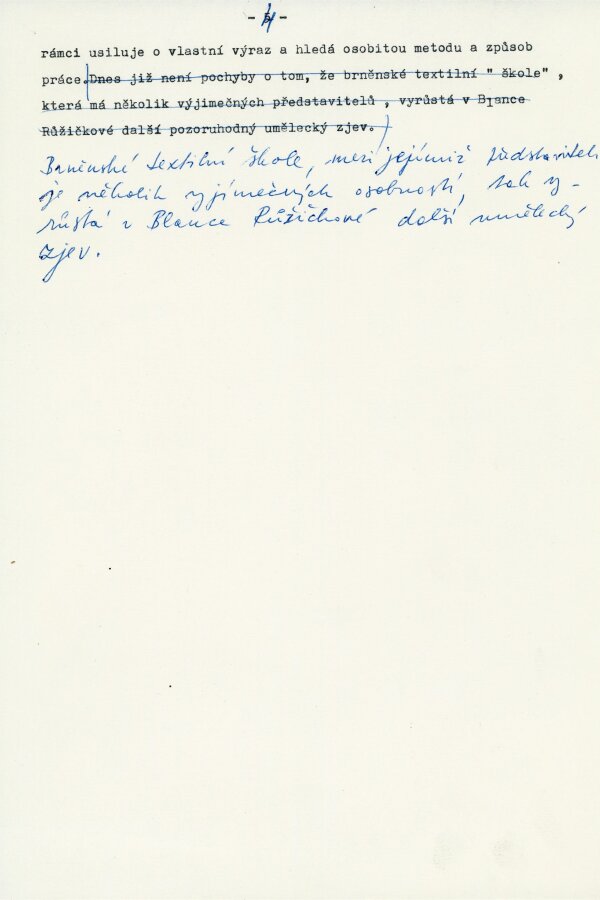 - 4 -
rámci usiluje o vlastní výraz a hledá osobitou metodu a způsob
práce.Dnes již není pochyby o tom, že brněnské textilní " škole" ,
která má několik výjimečných představitelů , vyrůstá v Blance
Růžičkové další pozoruhodný umělecký zjev.
Brněnské textilní škole, mezi jejímiž představiteli
je několik vyjímečných osobností, tak vy-
růstá v Blance Růžičkové další umělecký
zjev.